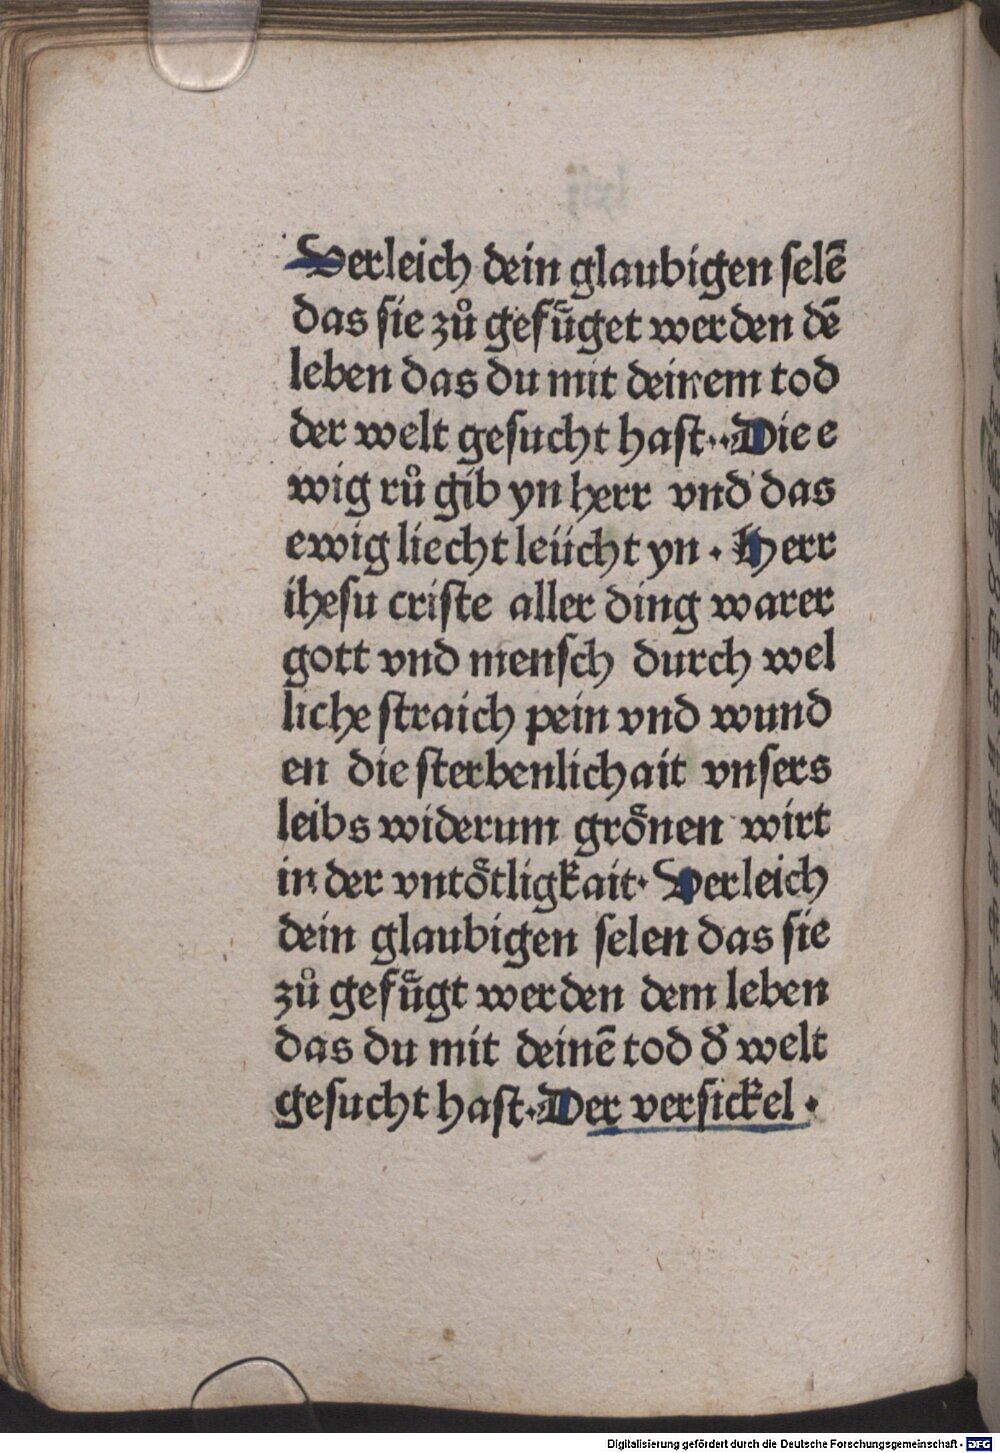 Verleich dein glaubigen selē
das sie zů gefu̎get werden dē
leben das du mit deinem tod
der welt gesucht hast··Die e
wig rů gib yn herr vnd das
ewig liecht leücht yn · Herr
ihesu criste aller ding warer
gott vnd mensch durch wel
liche straich pein vnd wund
en die sterbenlichait vnsers
leibs widerum gröͤnen wirt
in der vntoͤtligkait· Verleich
dein glaubigen selen das sie
zů gefu̎gt werden dem leben
das du mit deinē tod d̕ welt
gesucht hast·Der versickel ·
Digitalisierung gefördert durch die Deutsche Forschungsgemeinschaft - DFG